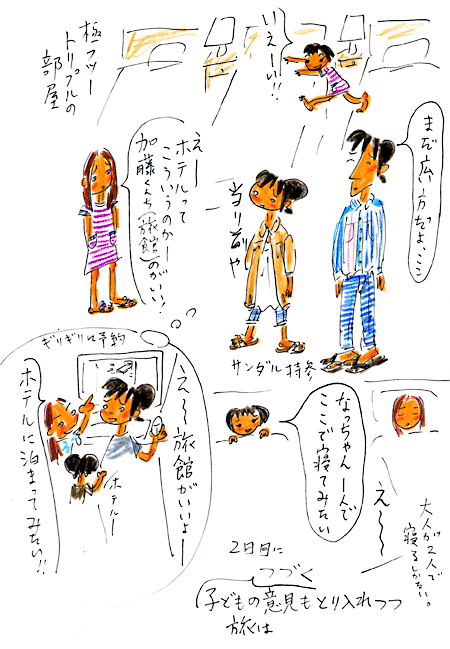 極フツー
トリプルの
部屋
いぇーい!!
まだ広い方だよ、ここ
えー
ホテルって
こういうのかー
加藤くんち(旅館)のがいい!
当り前じゃ
サンダル持参
ぎりぎりに予約
え〜旅館がいいよー
ホテルー
ホテルに泊まってみたい!!
なっちゃん一人で
ここで寝てみたい
え〜
大人が2人で
寝るしかない。
子どもの意見もとり入れつつ
旅は
2日目に
つづく